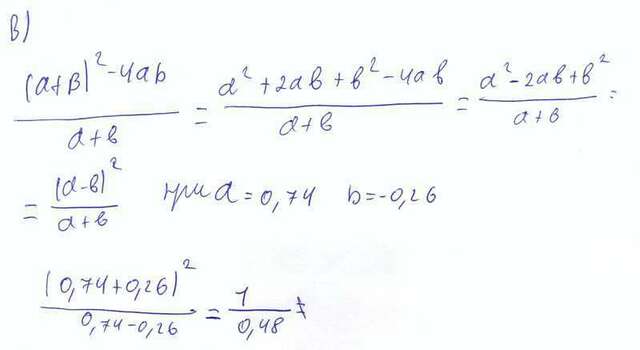 в)
((a+b)² - 4ab)/(a+b) = (a² + 2ab + b² - 4ab)/(a+b) = (a² - 2ab + b²)/(a+b) =
= (a-b)²/(a+b) при a = 0,74 b = -0,26
(0,74+0,26)²/(0,74-0,26) = 1/0,48